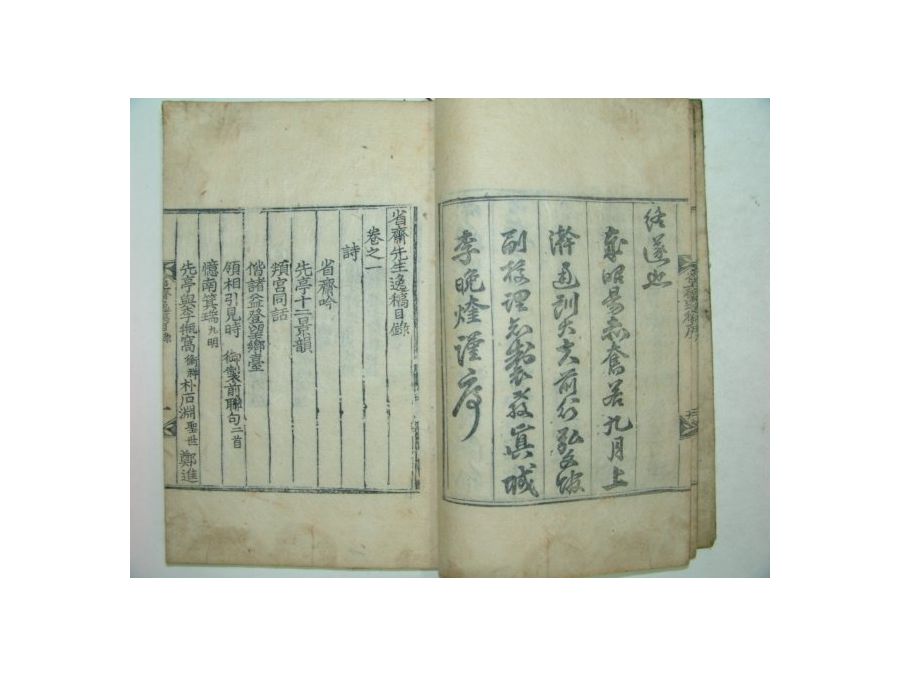 歲昭昜赤奮若九月上
澣通訓大夫前行弘文館
副校理知製敎眞城
李晩煃謹序
省齋先生逸稿目錄
卷之一
詩
省齋吟
先亭十二景韻
頖宮同話
偕諸益登望鄕臺
領相引見時 御製前聯句二首
憶南箕瑞九明
先亭與李 窩 朴石淵聖世鄭進